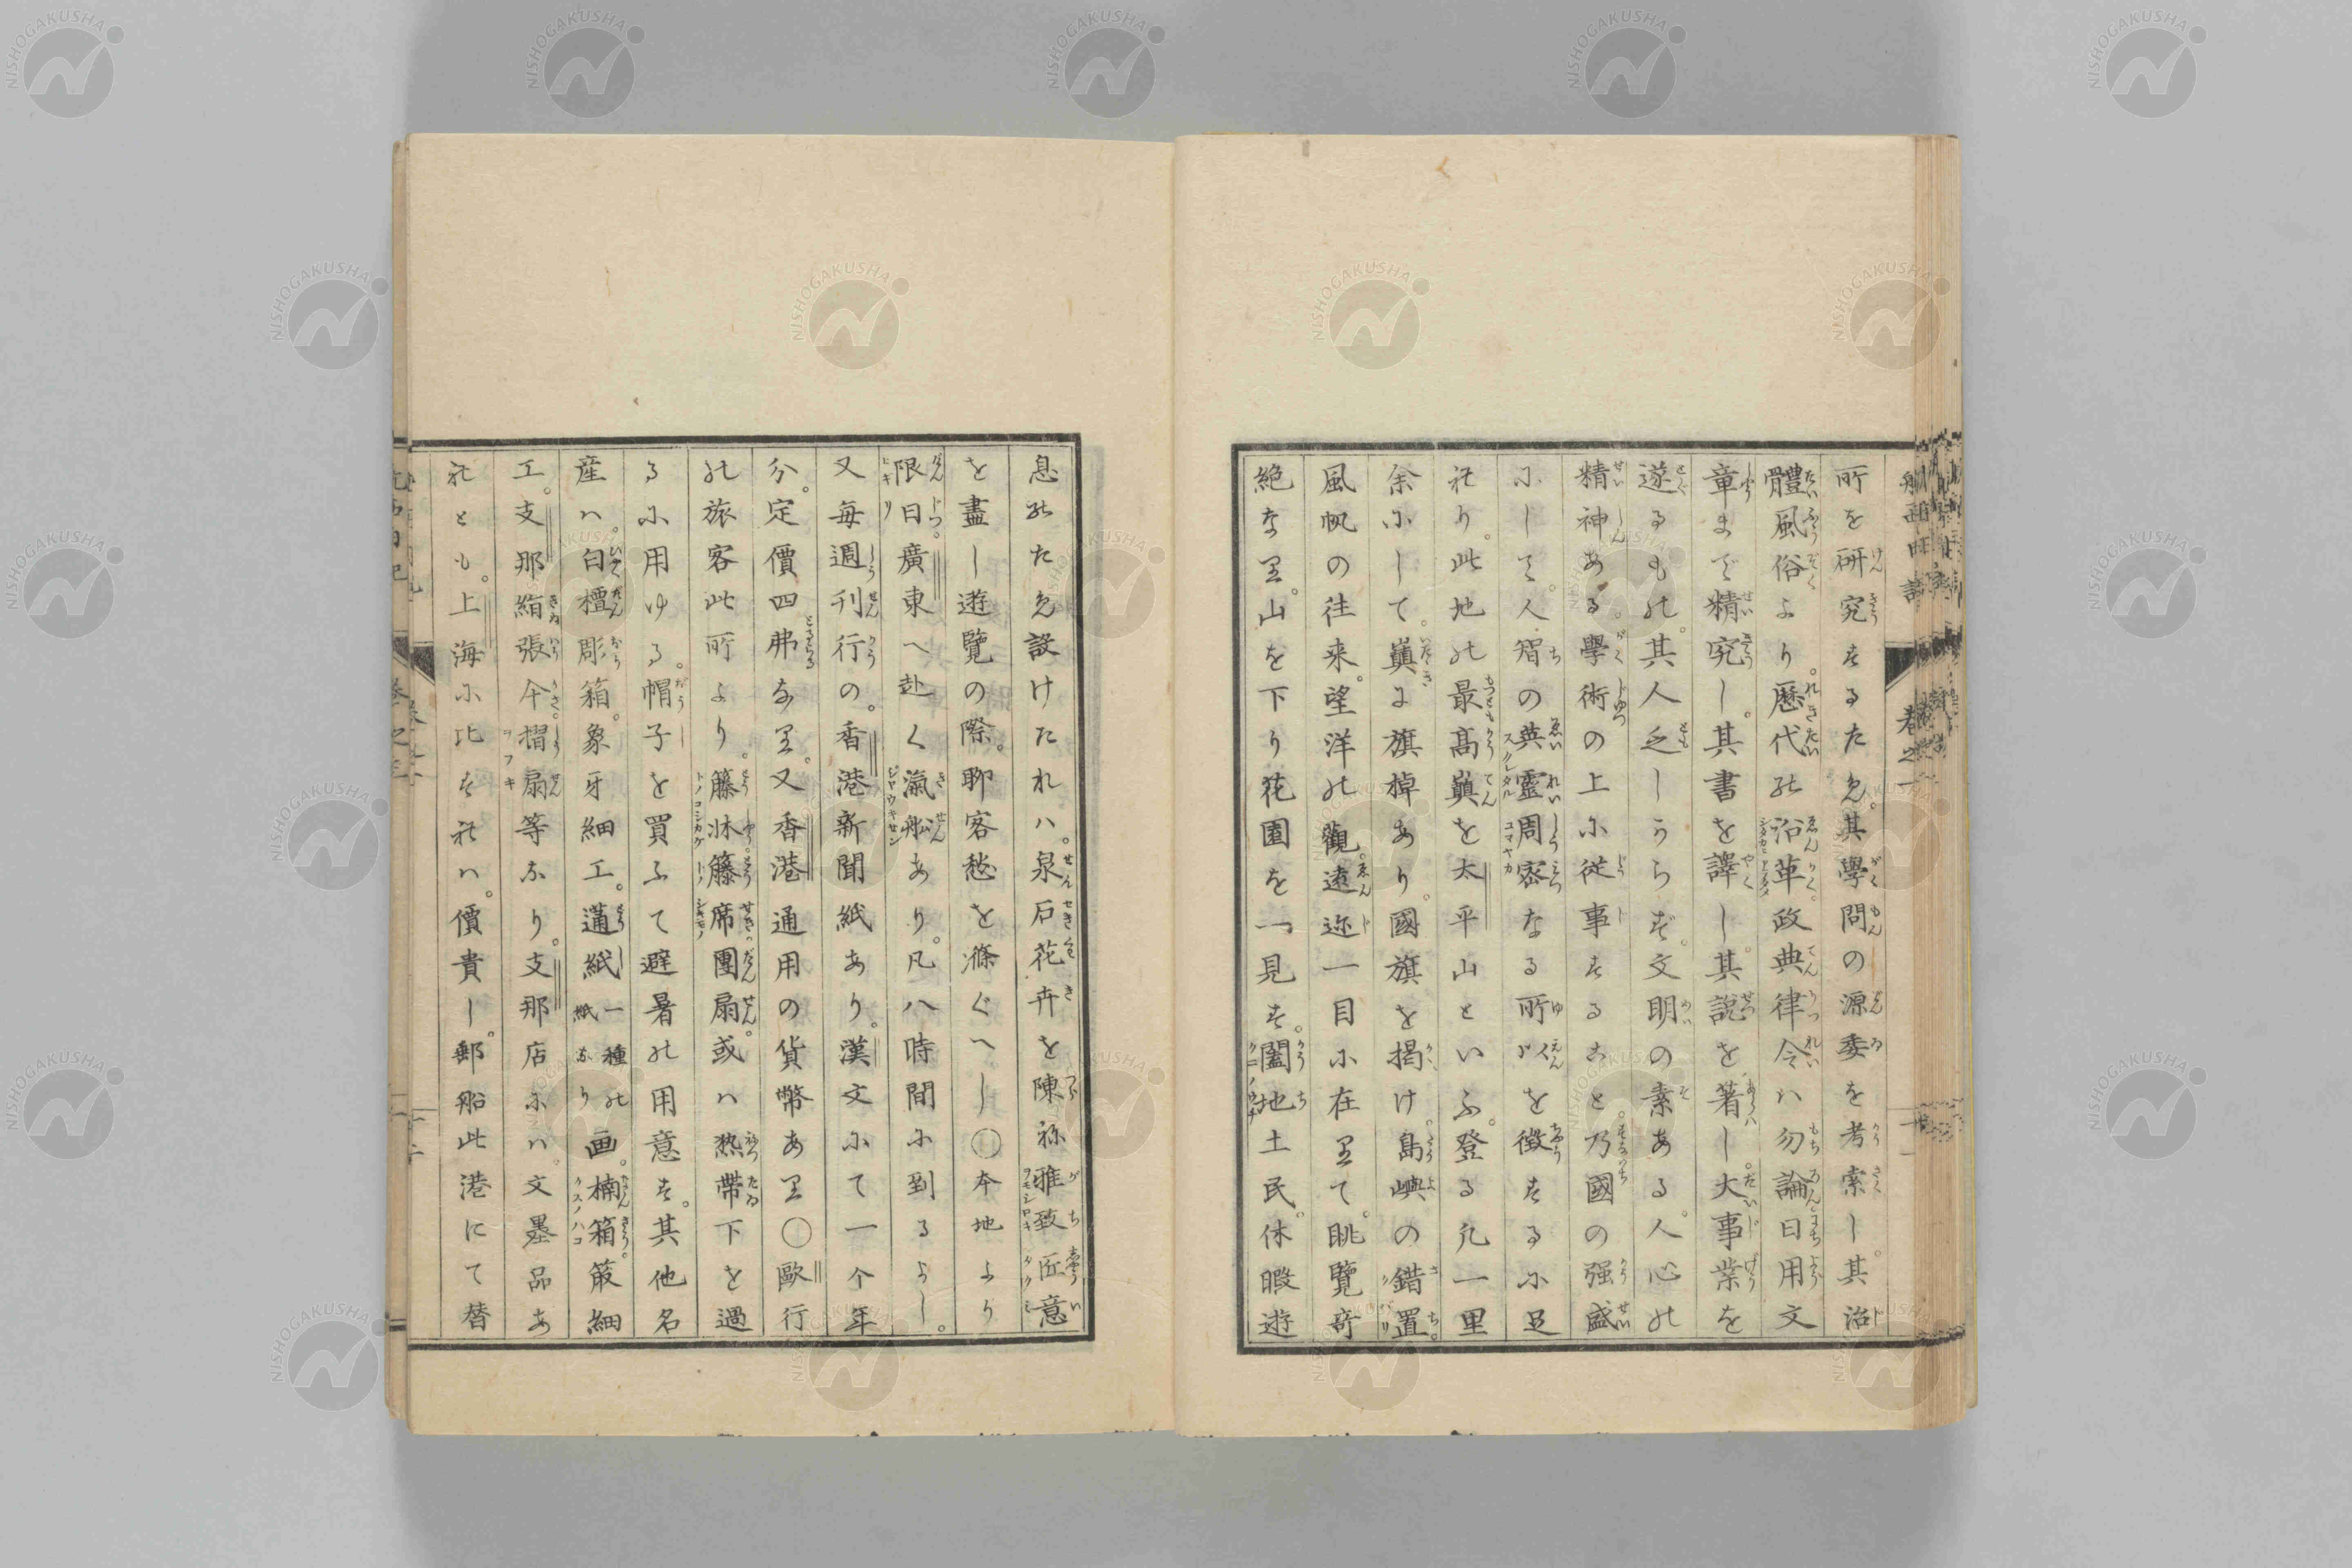 所を研究するため。其學問の源委を考索し。其治
體風俗より。歴代の沿革。政典律令ハ勿論日用文
章まで精究し。其書を譯し。其説を著し。大事業を
遂るもの。其人乏しからず。文明の素ある。人心の
精神ある。學術の上に従事すること。乃國の强盛
にして。人智の英靈周密なる所以を徴するに足
れり。此地の最高巓を太平山といふ。登る凡一里
余にして。巓に旗棹あり。國旗を掲け。島嶼の錯置
風帆の往来。望洋の觀。遠近一目に在りて。眺覽奇
絶なり。山を下り花園を一見す。闔地土民。休暇遊
息のため設けたれハ。泉石花卉を陳ね雅致匠意
を盡し遊覽の際。聊客愁を滌ぐへし〇本地より
限日。廣東へ赴く滊船あり。凡八時間に到るよし。
又每週刊行の。香港新聞紙あり。漢文にて一个年
分。定價四弗なり。又香港通用の貨幣あり〇歐行
の旅客此所より。籐牀。籐席團扇。或ハ熱帶下を過
るに用ゆる。帽子を買ふて避暑の用意す。其他名
産ハ。白檀彫箱。象牙細工。蓪紙一種の紙なり画。楠箱。䈰細
工。支那絹張傘。摺扇等なり。支那店にハ。文墨品あ
れとも。上海に比すれハ。價貴し。郵船此港にて替